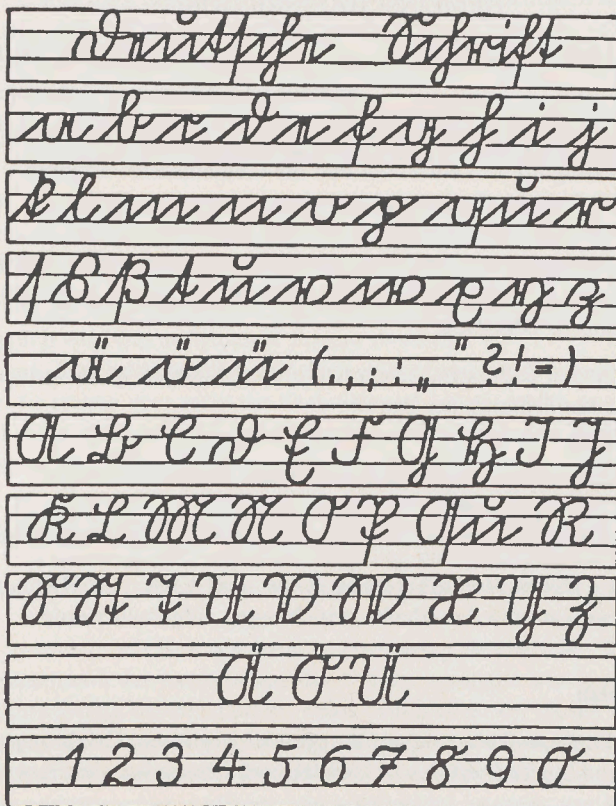 Deutſche Schrift
a b c d e f g h i j
k l m n o p qu r
ſ s ß t u v w x y z
ä ö ü ( . , ; : „ “ ? ! = )
A B C D E F G H I J
K L M N O P Qu R
S St T U V W X Y Z
Ä Ö Ü
1 2 3 4 5 6 7 8 9 0